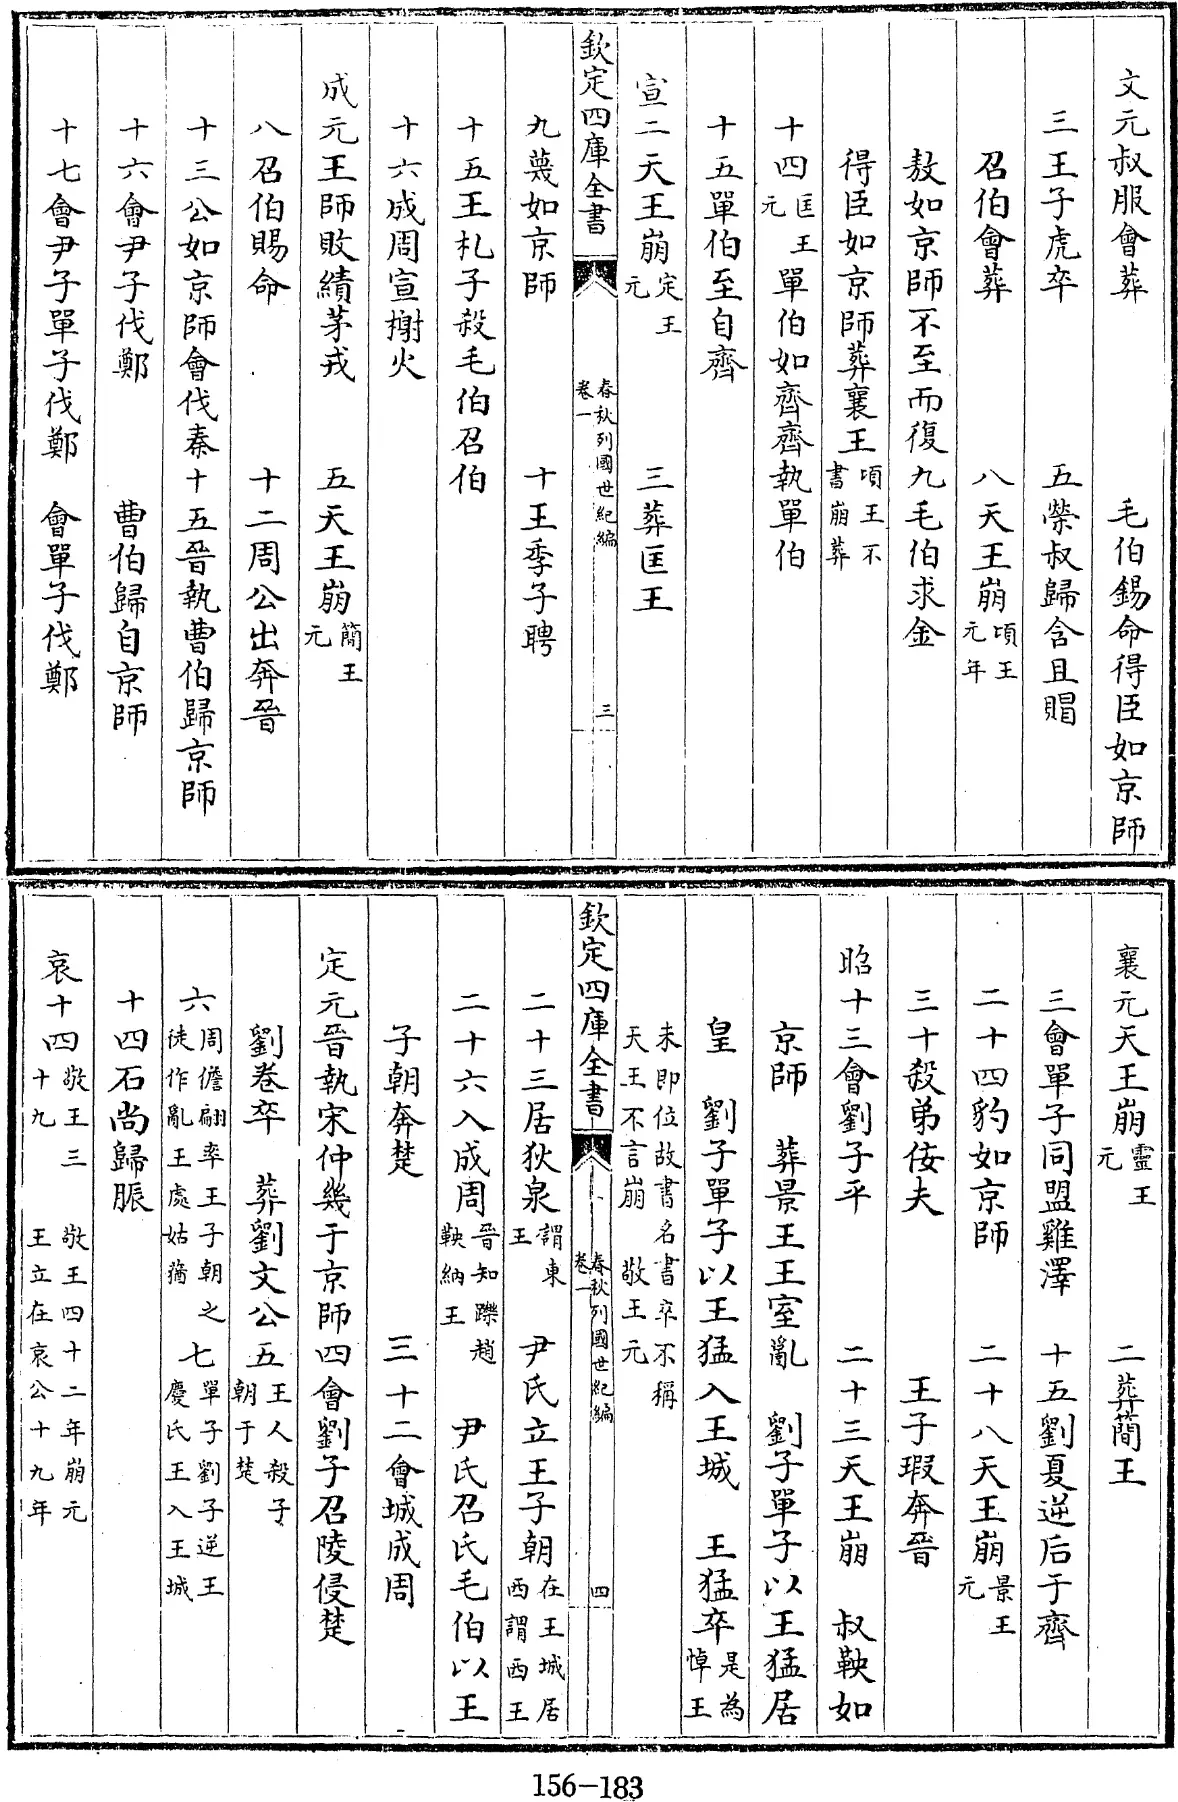 文元叔服會葬　毛伯錫命得臣如京師
三王子虎卒　五榮叔歸含且賵
召伯會葬　八天王崩頃王元年
敖如京師不至而復九毛伯求金
得臣如京師葬襄王頃王不書崩葬
十四匡王元單伯如齊齊執單伯
十五單伯至自齊
宣二天王崩定王元　三葬匡王
欽定四庫全書　春秋列國世紀編卷一　三
九蔑如京師　十王季子聘
十五王札子殺毛伯召伯
十六成周宣榭火
成元王師敗績茅戎　五天王崩簡王元
八召伯賜命　十二周公出奔晉
十三公如京師會伐秦十五晉執曹伯歸京師
十六會尹子伐鄭　曹伯歸自京師
十七會尹子單子伐鄭　會單子伐鄭
襄元天王崩靈王元　二葬簡王
三會單子同盟雞澤　十五劉夏逆后于齊
二十四豹如京師　二十八天王崩景王元
三十殺弟佞夫　王子瑕奔晉
昭十三會劉子平　二十三天王崩　叔鞅如
京師　葬景王王室亂　劉子單子以王猛居
皇　劉子單子以王猛入王城　王猛卒是為悼王
未即位故書名書卒不稱天王不言崩　敬王元
欽定四庫全書　春秋列國世紀編卷一　四
二十三居狄泉謂東王　尹氏立王子朝在王城居西謂西王
二十六入成周晉知躒趙鞅納王　尹氏召氏毛伯以王
子朝奔楚　三十二會城成周
定元晉執宋仲幾于京師四會劉子召陵侵楚
劉卷卒　葬劉文公五王人殺子朝于楚
六周儋翩率王子朝之徒作亂王處姑蕕七單子劉子逆王慶氏王入王城
十四石尚歸脤
哀十四敬王三十九　敬王四十二年崩元王立在哀公十九年
156-183